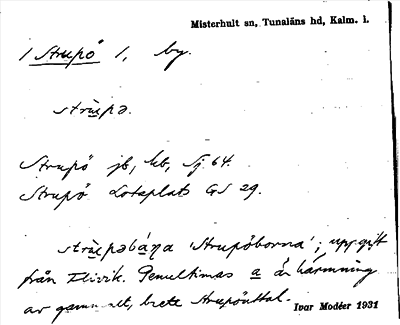 Misterhult sn, Tunaläns hd, Kalm. l.
1 Strupö 1, by.
strùpə.
Strupö jb, kb, Sj 64.
Strupö Lotsplats GS 29.
'Strupöborna', uppgift
från Flivik. Penultimas a är härmning
av gammalt, brett Strupöuttal.
Ivar Modéer 1931